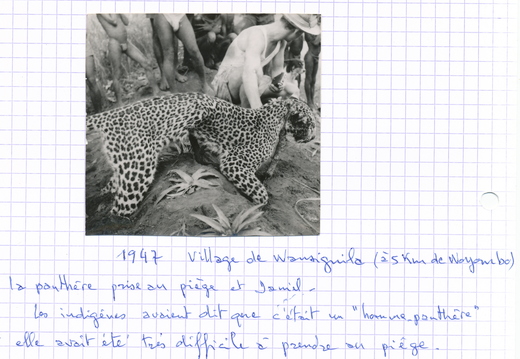 1947 Village de Wansiguila (à 5 Km de Moyombo)
la panthère prise au piège et Jamil -
les indigènes avaient dit que c'était un "homme-panthère"
elle avait été très difficile à prendre au piège.